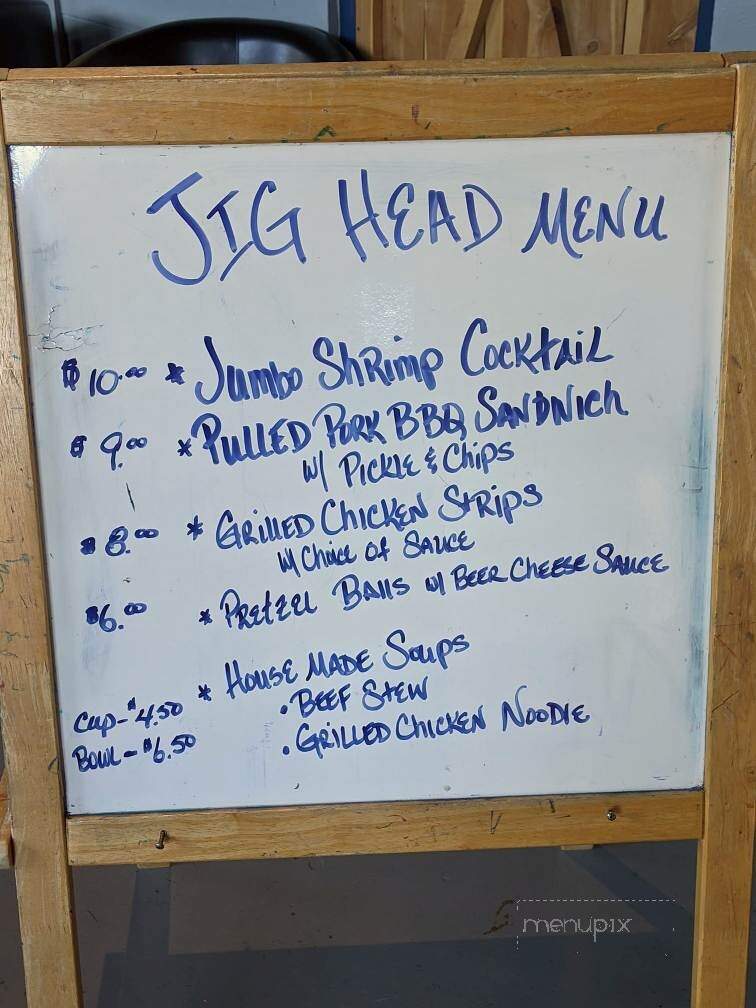 JIG HEAD MENU
$10.00 * Jumbo Shrimp Cocktail
$9.00 * Pulled Pork BBQ Sandwich
w/ Pickle & Chips
$8.00 * Grilled Chicken Strips
w/ Choice of Sauce
$6.00 * Pretzel Balls w/ Beer Cheese Sauce
* House Made Soups
Cup-$4.50 • Beef Stew
Bowl-$6.50 • Grilled Chicken Noodle
menupix